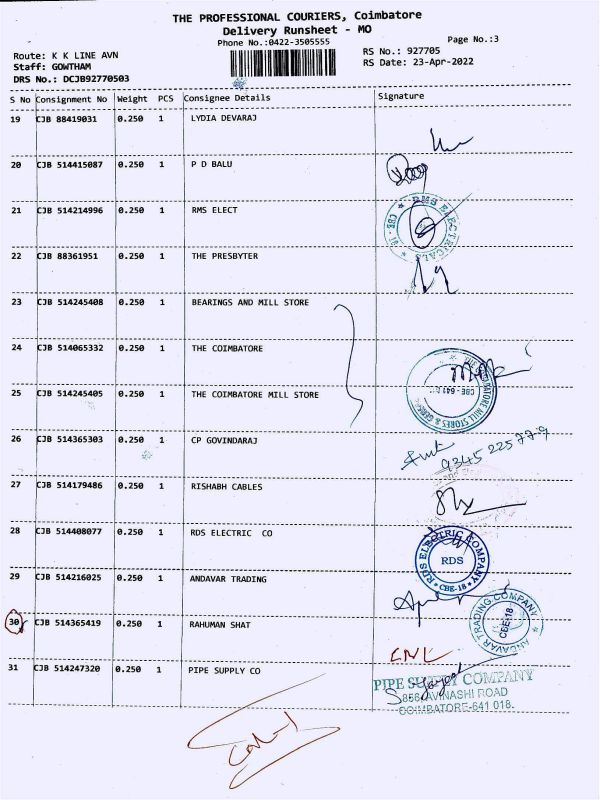 THE PROFESSIONAL COURIERS, Coimbatore
Delivery Runsheet - MO
Phone No.:0422-3505555
Page No.:3
Route: K K LINE AVN
RS No.: 927705
Staff: GOWTHAM
RS Date: 23-Apr-2022
DRS No.: DCJB92770503
S No Consignment No Weight PCS Consignee Details Signature
19 CJB 88419031 0.250 1 LYDIA DEVARAJ
20 CJB 514415087 0.250 1 P D BALU
21 CJB 514214996 0.250 1 RMS ELECT
RMS ELECTRICALS
CBE - 18
22 CJB 88361951 0.250 1 THE PRESBYTER
23 CJB 514245408 0.250 1 BEARINGS AND MILL STORE
24 CJB 514065332 0.250 1 THE COIMBATORE
25 CJB 514245405 0.250 1 THE COIMBATORE MILL STORE
26 CJB 514365303 0.250 1 CP GOVINDARAJ
27 CJB 514179486 0.250 1 RISHABH CABLES
28 CJB 514408077 0.250 1 RDS ELECTRIC CO
RDS ELECTRIC COMPANY
RDS
CBE-18
29 CJB 514216025 0.250 1 ANDAVAR TRADING
ANDAVAR TRADING COMPANY
CBE-18
30 CJB 514365419 0.250 1 RAHUMAN SHAT
CNL
31 CJB 514247320 0.250 1 PIPE SUPPLY CO
PIPE SUPPLY COMPANY
856, AVINASHI ROAD
COIMBATORE-641 018.